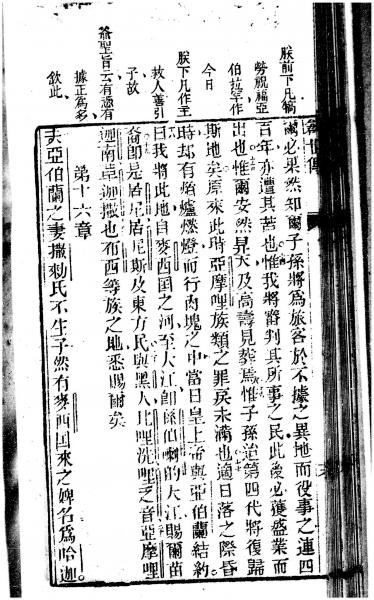 朕前下凡犒
勞祝福亞
伯拉罕作
今日
朕下凡作主
救人善引
子故
爺聖旨云有憑有
據正為多
欽此
爾必果然知爾子孫將為旅客於不據之異地而役事之連四
百年亦遭其苦也惟我將審判其所事之民此後必獲盛業而
出也惟爾安然昇天及高壽見葬焉惟子孫迨第四代將復歸
斯地矣原來此時亞摩哩族類之罪戾未滿也適日落之際昏
時却有焰爐燃燈而行肉塊之中當日皇上帝與亞伯蘭結約
曰我將此地自麥西國之河至大江即係伯喇的大江賜爾苗
裔即是盾尼盾尼斯及東方民與黑人比哩洗哩乏音亞摩哩
迦南革迦撒也布西等族之地悉賜爾矣
第十六章
夫亞伯蘭之妻撒剌氏不生子然有麥西國來之婢名為哈迦